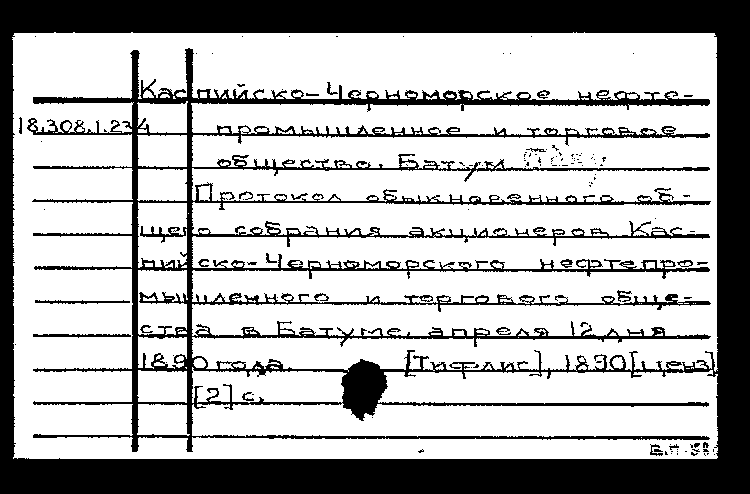 Каспийско-Черноморское нефте-
18.308.1.234 промышленное и торговое
общество. Батум
Протокол обыкновенного об-
щего собрания акционеров Кас-
пийско-Черноморского нефтепро-
мышленного и торгового обще-
ства в Батуме, апреля 12 дня
1890 года. [Тифлис], 1890 [ценз]
[2] с.